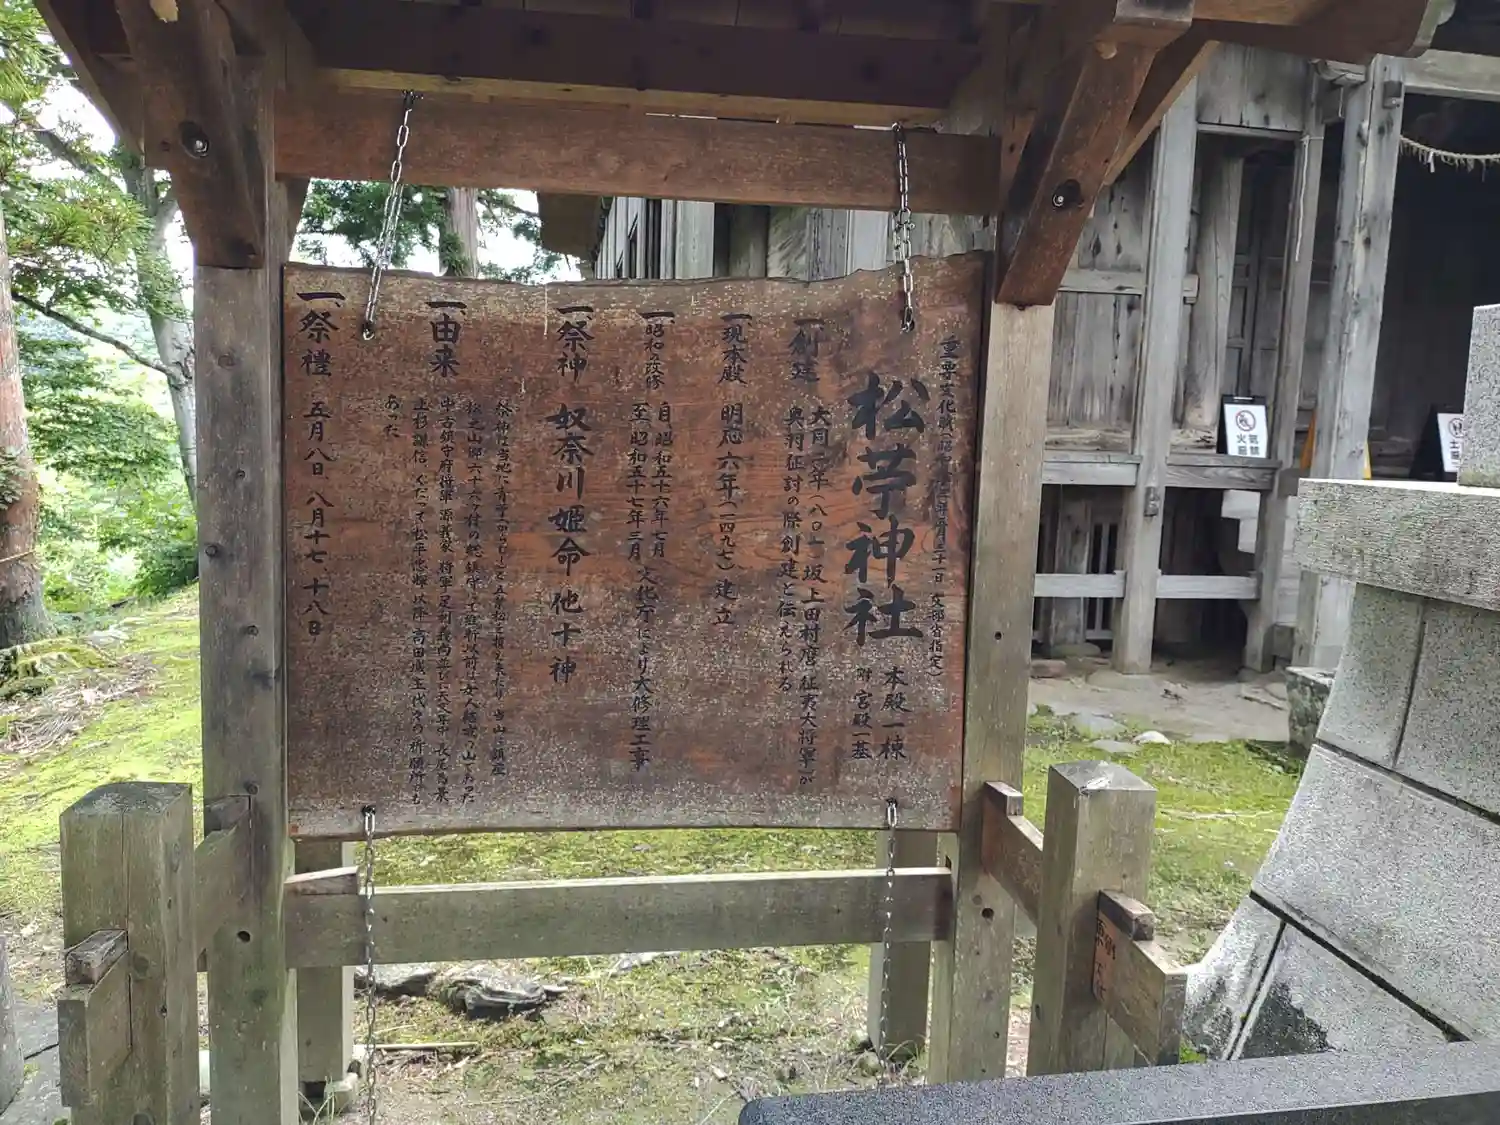 重要文化財(昭和 年 月三十一日 文部省指定)
松苧神社 本殿一棟
附 宮殿一基
一、創建 大同二年(八〇 )坂上田村麿(征夷大将軍)が
奥羽征討の際創建と伝えられる
一、現本殿 明応六年(一四九七)建立
一、昭和の改修 自 昭和五十六年七月
至 昭和五十七年三月 文化庁により大修理工事
一、祭神 奴奈川姫命 他十神
祭神は当地に青苧 と 当山に鎮座
松之山郷六十六ヶ村の総鎮守で維新以前は女人禁制の山であった
中古鎮守府将軍 源義家 将軍 足利義尚並びに天文年中 長尾為景
上杉謙信、くだって松平忠輝 以降 高田城主代々の祈願所でも
あった
一、由来
一、祭禮 五月八日、八月十七、十八日
火気厳禁
土足厳禁